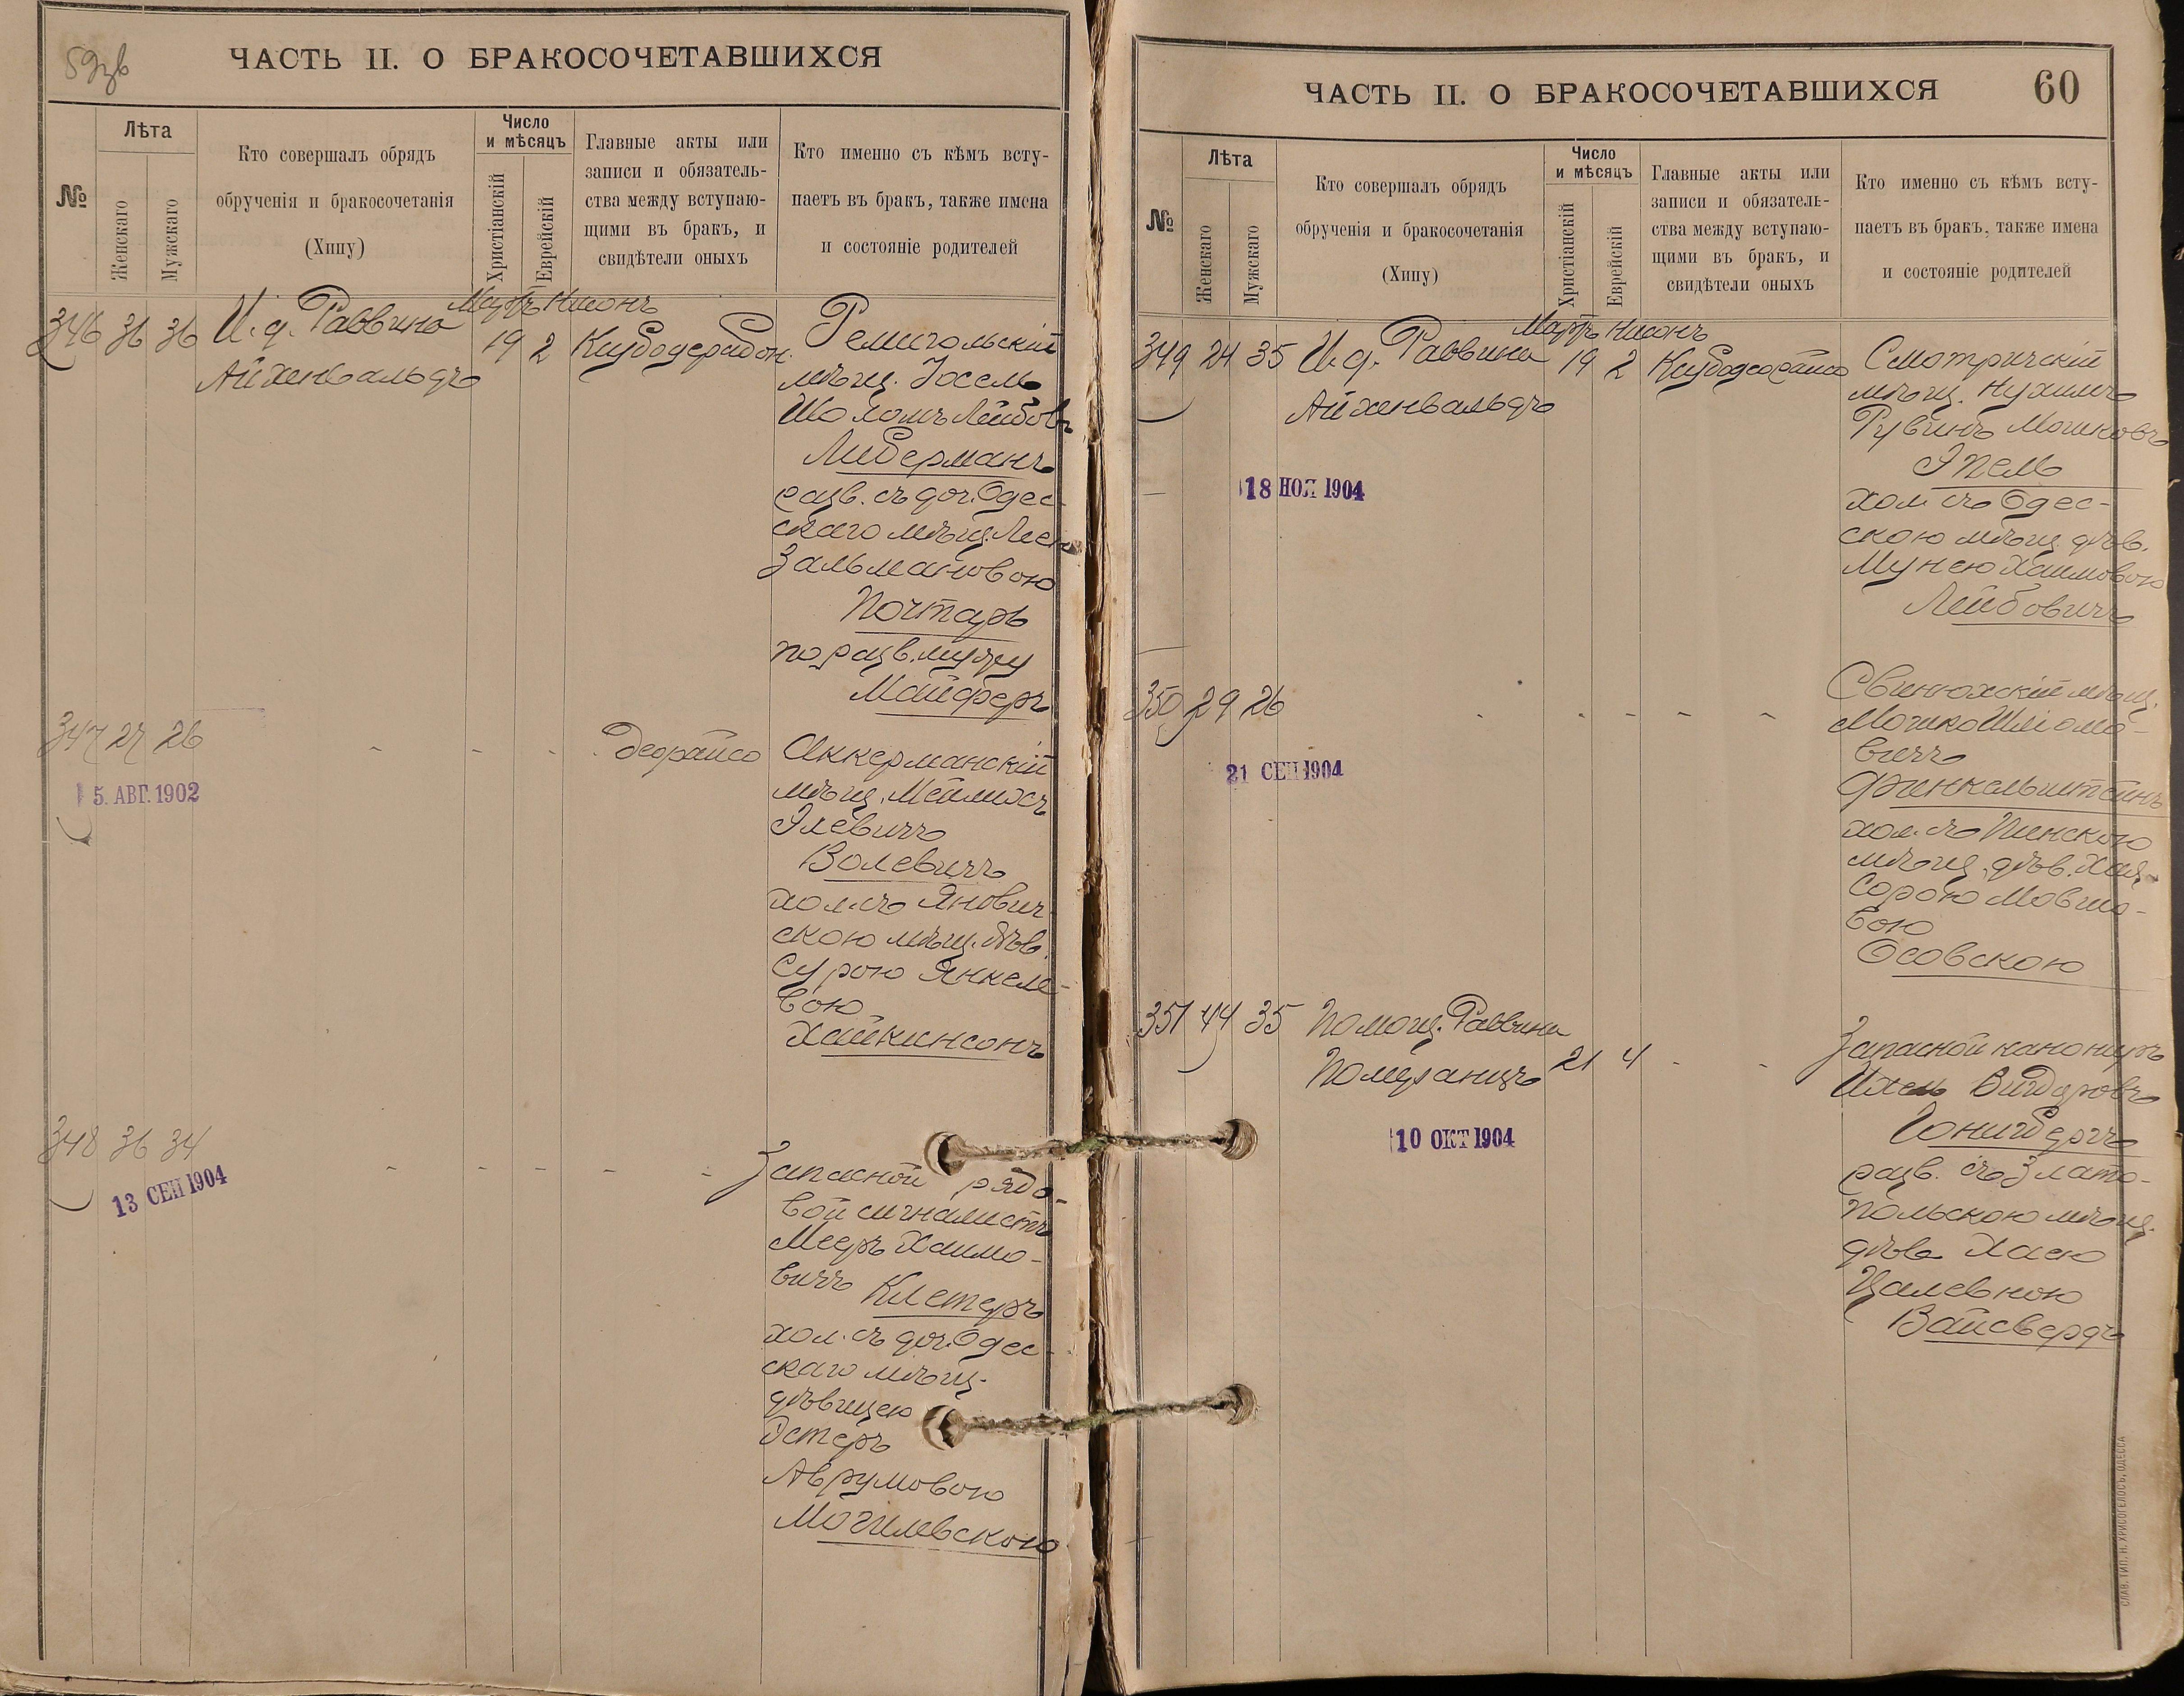 59зв
ЧАСТЬ II. О БРАКОСОЧЕТАВШИХСЯ
№
Лѣта
Женскаго
Мужскаго
Кто совершалъ обрядъ
обрученія и бракосочетанія
(Хипу)
Число
и мѣсяцъ
Христіанскій
Еврейскій
Главные акты или
записи и обязатель-
ства между вступаю-
щими въ бракъ, и
свидѣтели оныхъ
Кто именно съ кѣмъ всту-
паетъ въ бракъ, также имена
и состояніе родителей
346 36 36 И. д. Раввина
Айхенвальдъ
Мартъ Нисонъ
19 2
Ремигольскій
мѣщ. Іосель
Шоломъ Лейбовъ
Либерманъ
разв. съ доч. Одес-
скаго мѣщ.
Зальмановою
Почтарь
по разв. мужу
Майферъ
347 27 26 - - -
5. АВГ. 1902
Аккерманскій
мѣщ. Мейлихъ
Элевичъ
Волевичъ
хол. съ Янович-
скою мѣщ. дѣв.
Сурою Янкеле-
вою
Хайкинсонъ
348 36 34 - - - - -
13 СЕН 1904
Запасной рядо-
вой сигналистъ
Мееръ Хаимо-
вичъ Клетеръ
хол. съ доч. Одес-
скаго мѣщ.
дѣвицею
Эстеръ
Аврумовою
Могилевскою
ЧАСТЬ II. О БРАКОСОЧЕТАВШИХСЯ
60
№
Лѣта
Женскаго
Мужскаго
Кто совершалъ обрядъ
обрученія и бракосочетанія
(Хипу)
Число
и мѣсяцъ
Христіанскій
Еврейскій
Главные акты или
записи и обязатель-
ства между вступаю-
щими въ бракъ, и
свидѣтели оныхъ
Кто именно съ кѣмъ всту-
паетъ въ бракъ, также имена
и состояніе родителей
349 24 35 И. д. Раввина
Айхенвальдъ
Мартъ Нисонъ
19 2
18 НОЯ 1904
Смотричскій
мѣщ. Нухимъ
Рувинъ Мошковъ
Эпель
хол. съ Одес-
скою мѣщ. дѣв.
Мунею Хаимовою
Лейбовичъ
350 29 26 - - - - -
21 СЕН 1904
Свинюхскій мѣщ.
Мошко Шліомо-
вичъ
Финкельштейнъ
хол. съ Пинскою
мѣщ. дѣв. Хая-
Сорою Мовшо-
вою
Осовскою
351 44 35 Помощ. Раввина
Померанцъ 21 4 - -
10 ОКТ 1904
Запасной канониръ
Ихель Вигдоровъ
Гонигбергъ
разв. съ Злато-
польскою мѣщ.
дѣв. Хаею
Цалевною
Вайсбердъ
СЛАВ. ТИП. Н. ХРИСОГЕЛОСЪ, ОДЕССА